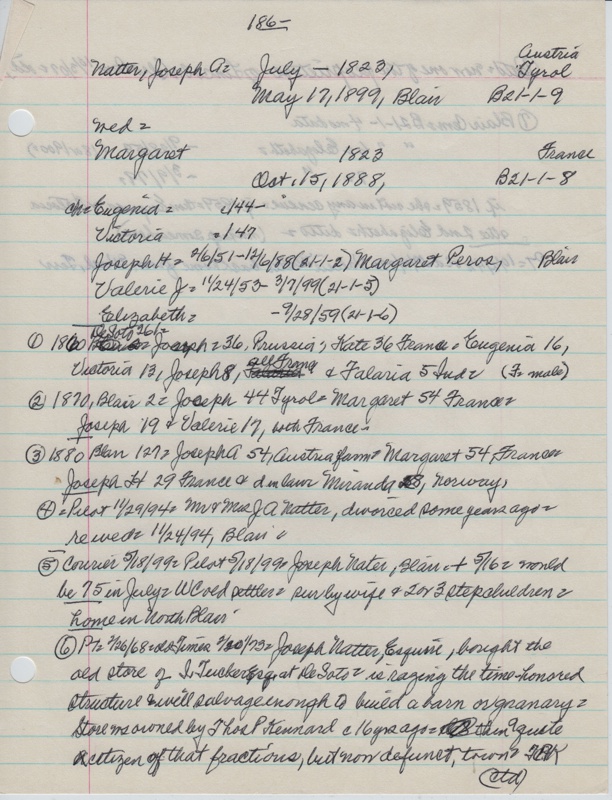 186-
Natter, Joseph A= July - 1823, Austria Tyrol
May 17, 1899, Blair B21-1-9
wed=
Margaret 1823 France
Oct. 15, 1888, B21-1-8
ch= Eugenia= c/44-
Victoria =1/47
Joseph H= 2/6/51-12/6/88 (21-1-2) Margaret Peros, Blair
Valerie J= 11/24/53- 3/7/99 (21-1-5)
Elizabeth= -9/28/59 (21-1-6)
① 1860 DeSoto 261= Joseph=36, Prussia, Kate 36 France= Eugenia 16,
Victoria 13, Joseph 8, all France & Falaria 5 Ind= (Fr male)
② 1870, Blair 2= Joseph 44 Tyrol= Margaret 54 France=
Joseph 19 & Valerie 17, both France=
③ 1880 Blair 127= Joseph A 54, Austria farm= Margaret 54, France=
Joseph H 29 France & d in law Miranda, Norway,
④= Pilot 11/29/94= Mr & Mrs J A Natter, divorced some years ago=
rewed= 11/24/94, Blair=
⑤ Courier 5/18/99= Pilot 5/18/99= Joseph Nater, Blair + 5/16= would
be 75 in July= WC old settler= sur by wife & 2 or 3 stepchildren=
home in North Blair
⑥ PT= 2/26/68= old Times = Joseph Natter, Esquire, bought the
old store of I. Tucker Esq. at DeSoto= is razing the time-honored
structure & will salvage enough to build a barn or granary=
Store was owned by Thos P Kennard c 16 yrs ago= then quite
a citizen of that fractious, but now defunct, town=
(ctd)